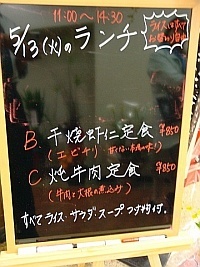 11:00〜14:30
5/13(火)のランチ
ライスはすべて
おかわり自由
B. 干焼虾仁定食 ¥850
(エビチリ 甘くない本場の味!)
C. 炖牛肉定食 ¥850
(牛肉と大根の煮込み)
すべてライス・サラダ・スープ・つけ物付。